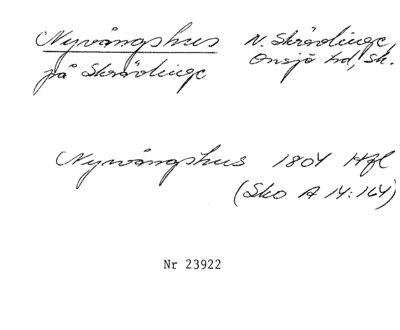 Nyvångshus N. Skrävlinge,
på Skrävlinge Onsjö hd, Sk.
Nyvångshus 1804 Hfl
(Sko A 14:164)
Nr 23922